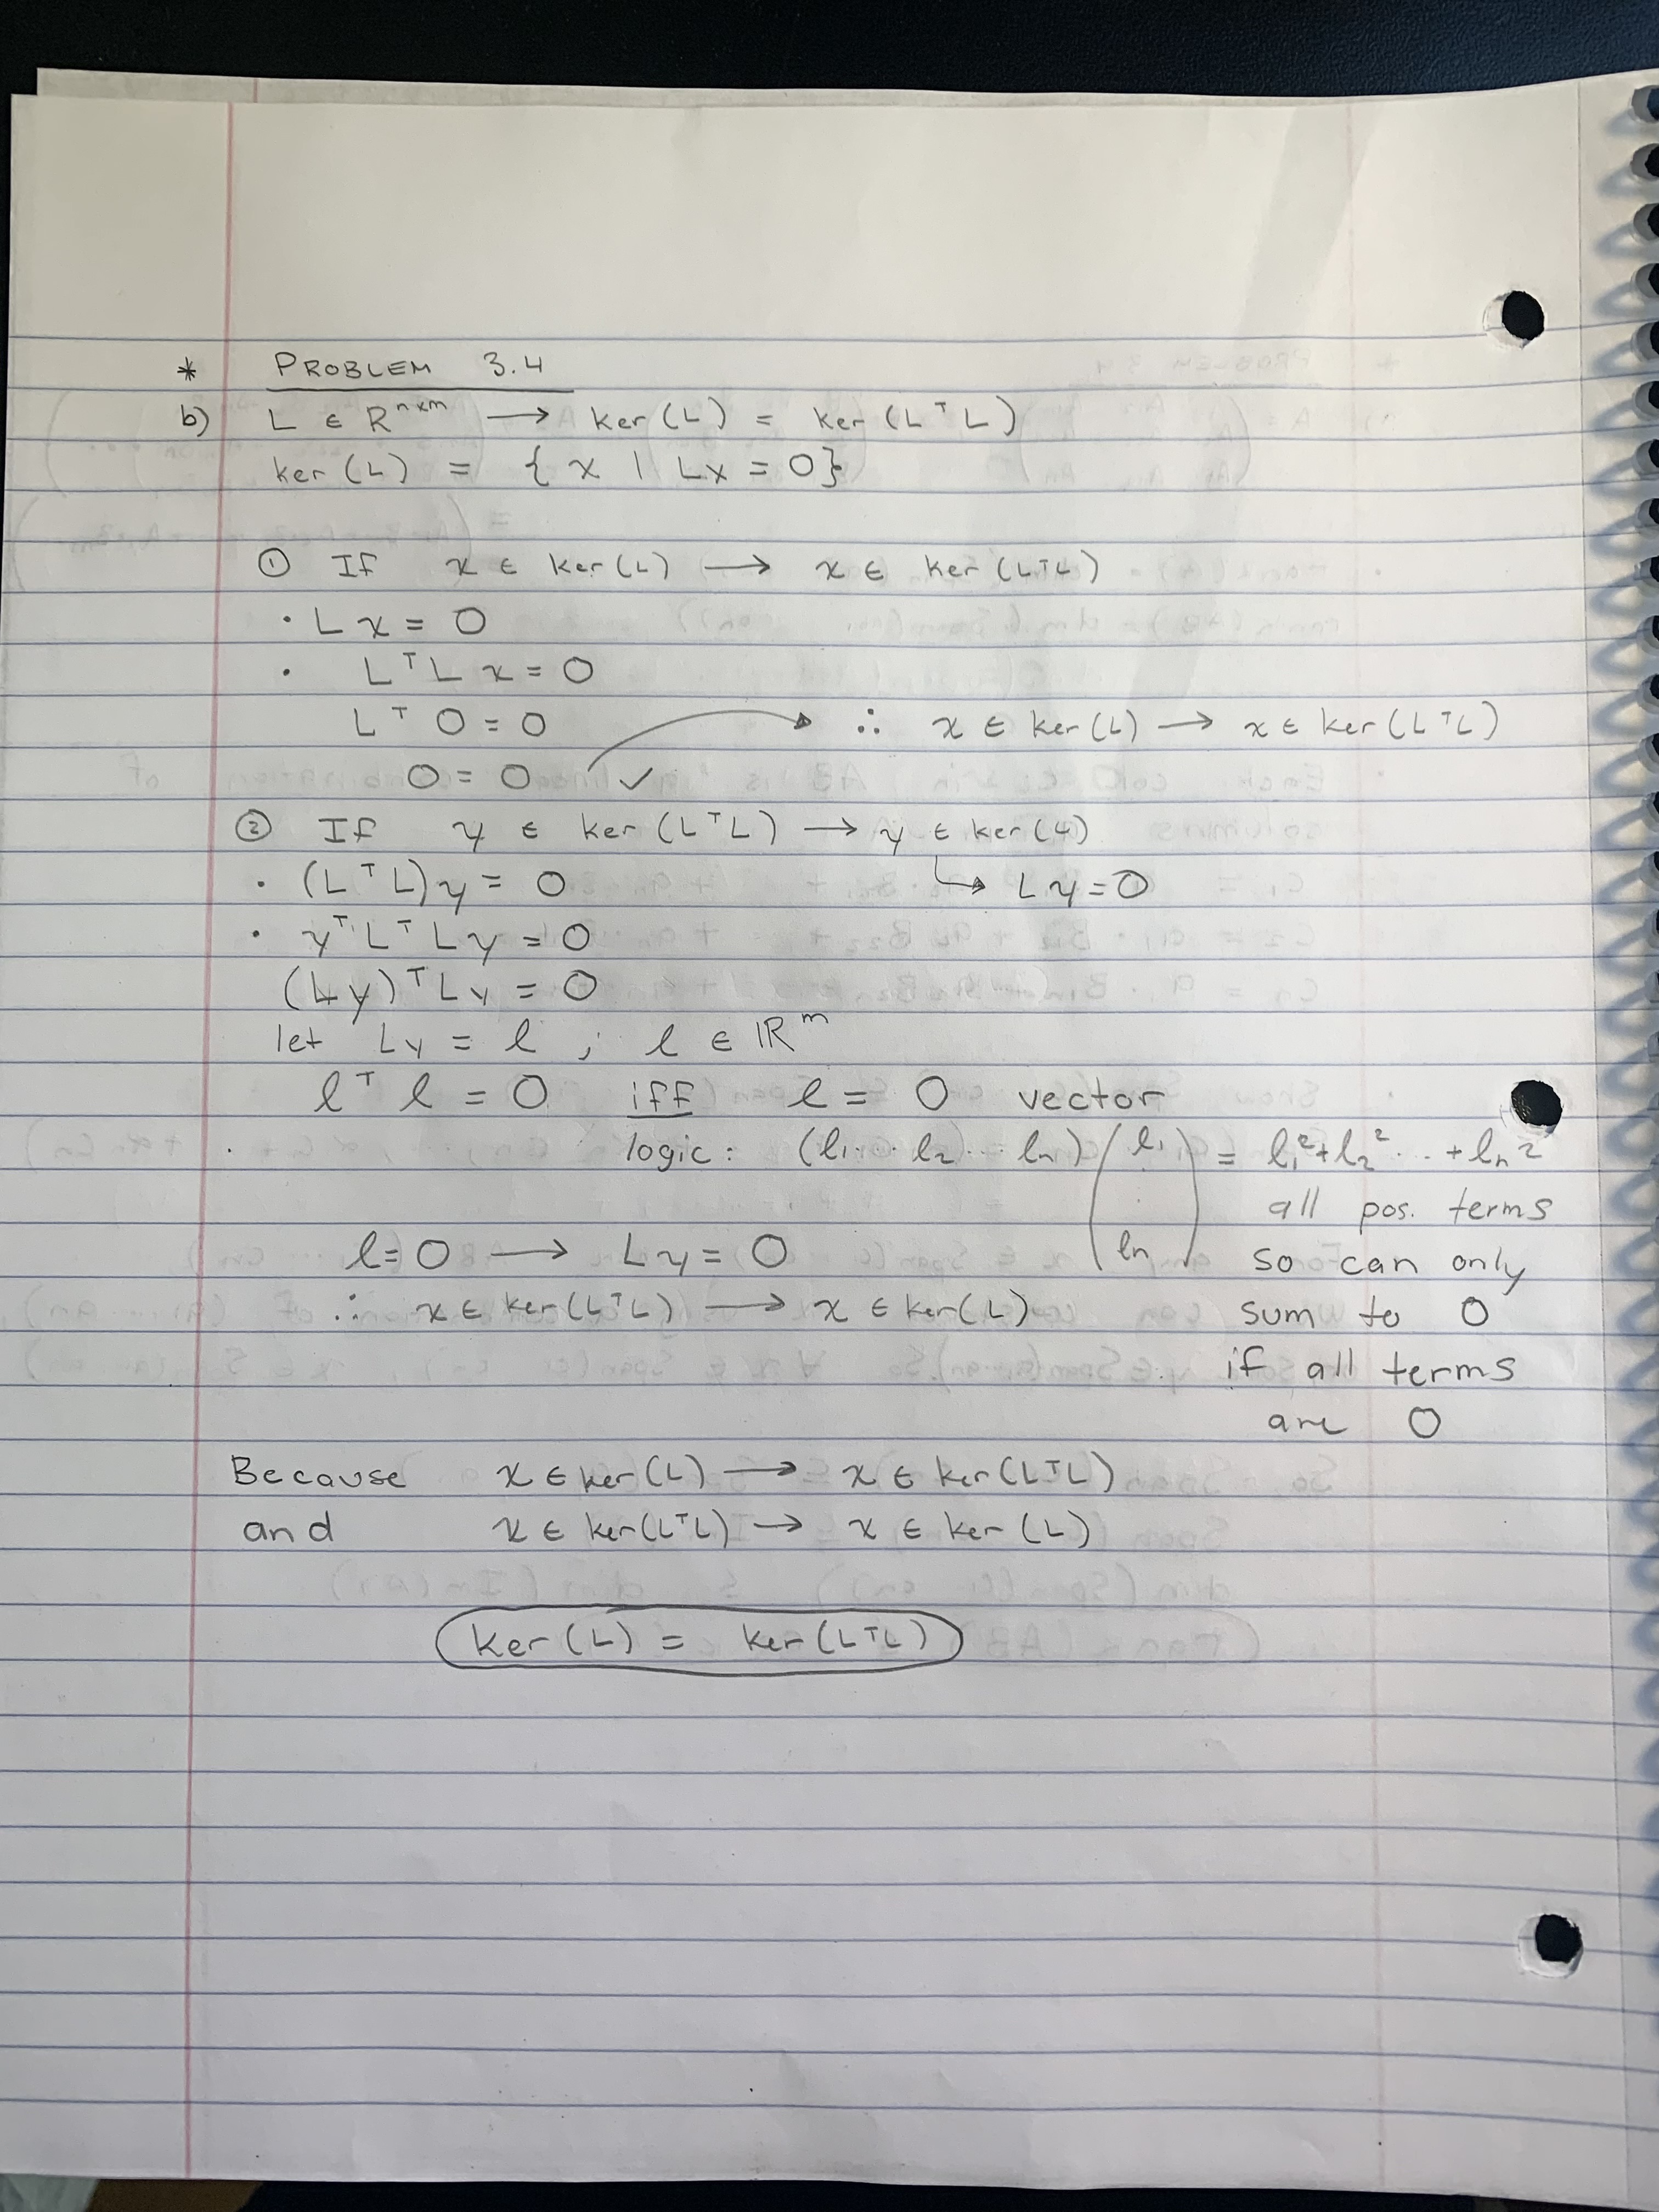 * PROBLEM 3.4
b) L ∈ R^{n×m} → ker(L) = ker(LᵀL)
ker(L) = { x | Lx = 0}
① If x ∈ ker(L) → x ∈ ker(LᵀL)
· Lx = 0
· LᵀLx = 0
Lᵀ0 = 0 ∴ x ∈ ker(L) → x ∈ ker(LᵀL)
0 = 0 ✓
② If y ∈ ker(LᵀL) → y ∈ ker(L)
· (LᵀL)y = 0 ↳ Ly = 0
· yᵀLᵀLy = 0
(Ly)ᵀLy = 0
let Ly = ℓ ; ℓ ∈ ℝᵐ
ℓᵀℓ = 0 iff ℓ = 0 vector
logic: (ℓ₁... ℓ₂... ℓₙ) (ℓ₁ ⋮ ℓₙ) = ℓ₁² + ℓ₂² ... + ℓₙ²
all pos. terms
ℓ = 0 → Ly = 0 so can only
∴ x ∈ ker(LᵀL) → x ∈ ker(L) sum to 0
if all terms
are 0
Because x ∈ ker(L) → x ∈ ker(LᵀL)
and x ∈ ker(LᵀL) → x ∈ ker(L)
ker(L) = ker(LᵀL)